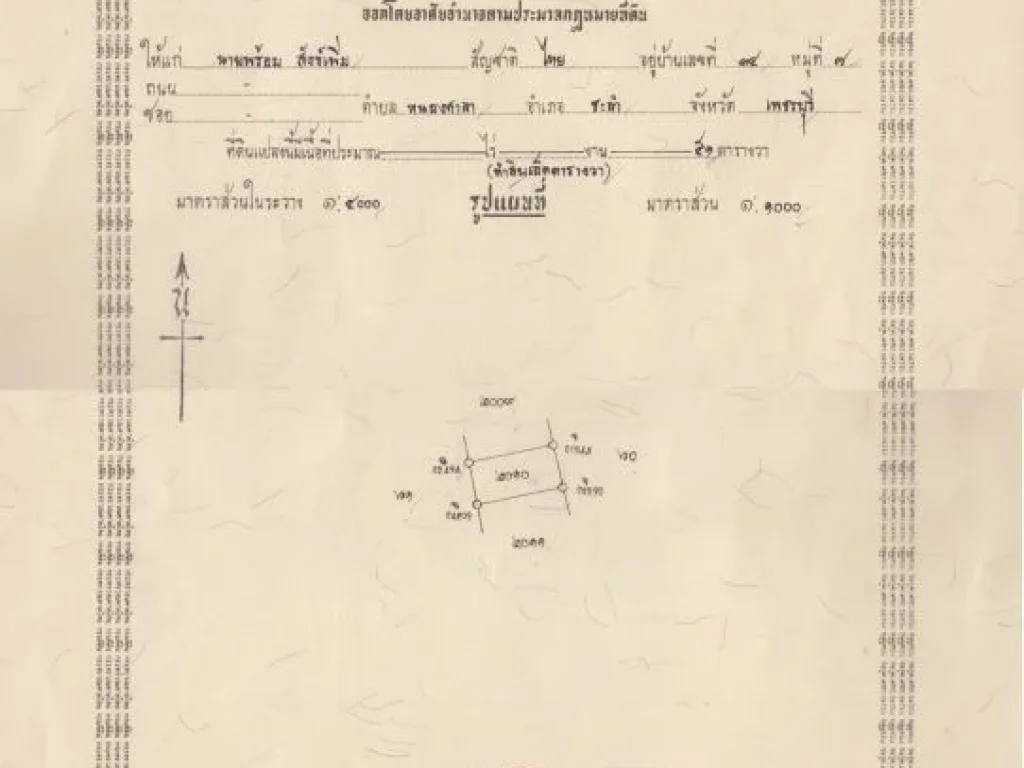 ออกโดยอาศัยอำนาจตามประมวลกฎหมายที่ดิน
ให้แก่ นายพร้อม สังข์เพิ่ม สัญชาติ ไทย อยู่บ้านเลขที่ ๓๕ หมู่ที่ ๗
ถนน -
ซอย - ตำบล หนองศาลา อำเภอ ชะอำ จังหวัด เพชรบุรี
ที่ดินแปลงนี้มีเนื้อที่ประมาณ ไร่ งาน ๕๑ ตารางวา
(ห้าสิบเอ็ดตารางวา)
มาตราส่วนในระวาง ๑:๔๐๐๐ รูปแผนที่ มาตราส่วน ๑:๑๐๐๐
น
๒๐๐๙
๒๐๑๐
ทาง
ทาง
๒๐๑๑